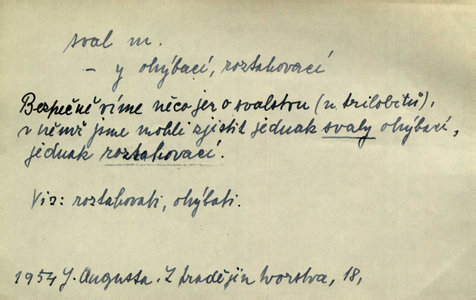 sval m.
– y ohýbací, roztahovací
Bezpečně víme něco jen o svalstvu (u trilobitů),
v němž jsme mohli zjistit jednak svaly ohýbací,
jednak roztahovací.
Viz: roztahovati, ohýbati.
1954 J. Augusta. Z pradějin tvorstva, 18,